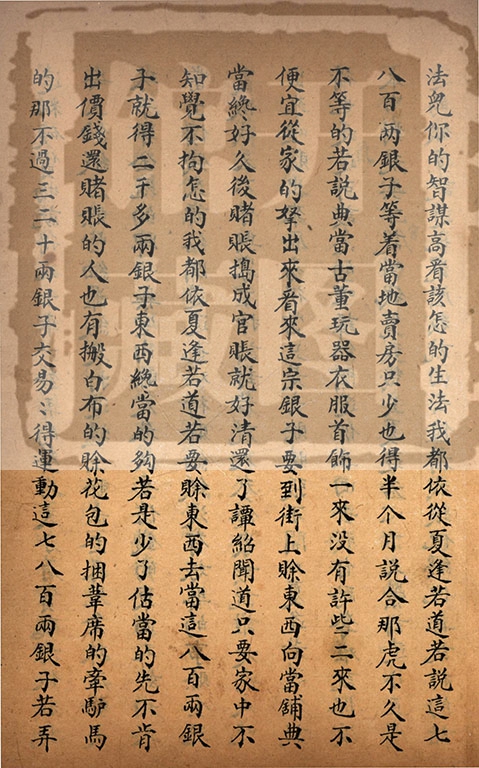 法兒你的智謀高看該怎的生法我都依從夏逢若道若說這七
八百兩銀子等着當地賣房只少也得半个月說合那虎不久是
不等的若說典當古董玩器衣服首飾一來没有許些二來也不
便宜從家的拏出來看來這宗銀子要到街上賒東西向當舖典
當纔好久後賭賬搗成官賬就好清還了譚紹聞道只要家中不
知覺不拘怎的我都依夏逢若道若要賒東西去當這八百兩銀
子就得二千多兩銀子東西纔當的夠若是少了估當的先不肯
出價錢還賭賬的人也有搬白布的賒花包的捆葦席的牽馿馬
的那不過三二十兩銀子交易〻得運動這七八百兩銀子若弄